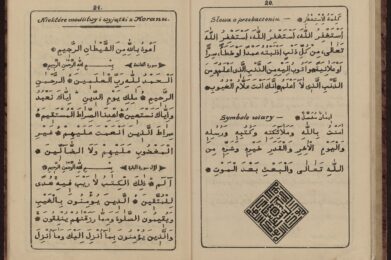 20.
Słowa o przebaczeniu. —
أستغفر الله، أستغفر الله، أستغفر الله
تعالى من كل ذنب أذنبته عمدا أو خطأ سرا
أو علانية وأتوب إليه من الذنب الذي أعلم ومن
الذنب الذي لا أعلم إنك أنت علام الغيوب
Symbole wiary. —
امنت بالله وملائكته وكتبه ورسله
واليوم الآخر والقدر خيره وشره من
الله تعالى والبعث بعد الموت
21.
Niektóre modlitwy i wyjątki z Koranu.
أعوذ بالله من الشيطان الرجيم
سورة الفاتحة
الحمد لله رب العلمين الرحمن
الرحيم ملك يوم الدين إياك نعبد
وإياك نستعين اهدنا الصراط المستقيم
صراط الذين أنعمت عليهم غير
المغضوب عليهم ولا الضالين
الم ذلك الكتب لا ريب فيه هدى
للمتقين الذين يؤمنون بالغيب
ويقيمون الصلوة ومما رزقنهم ينفقون
والذين يؤمنون بما أنزل إليك وما أنزل